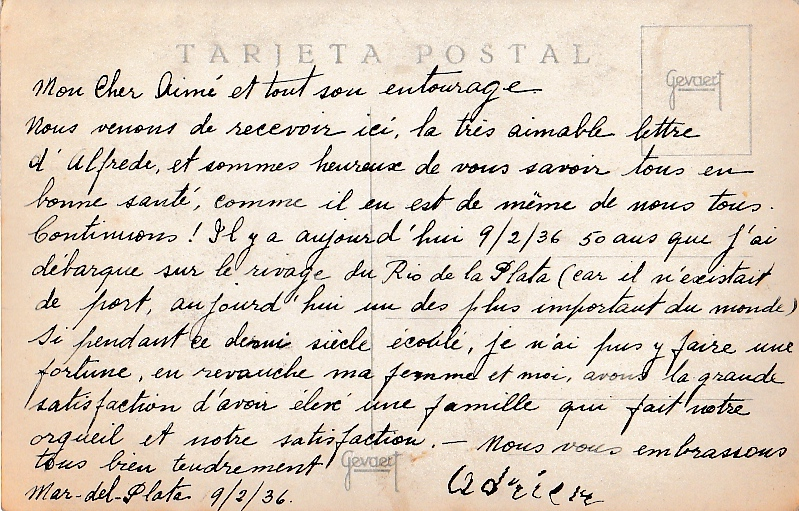 TARJETA POSTAL
Gevaert
Mon Cher Aimé et tout son entourage
Nous venons de recevoir ici, la très aimable lettre
d'Alfrede, et sommes heureux de vous savoir tous en
bonne santé, comme il en est de même de nous tous.
Continuons ! Il y a aujourd'hui 9/2/36 50 ans que j'ai
débarque sur le rivage du Rio de la Plata (car il n'existait
de port, aujourd'hui un des plus important du monde)
Si pendant ce demi siècle écoulé, je n'ai pus y faire une
fortune, en revanche ma femme et moi, avons la grande
satisfaction d'avoir élevé une famille qui fait notre
orgueil et notre satisfaction. — Nous vous embrassons
tous bien tendrement
Gevaert
Adrien
Mar-del-Plata 9/2/36.